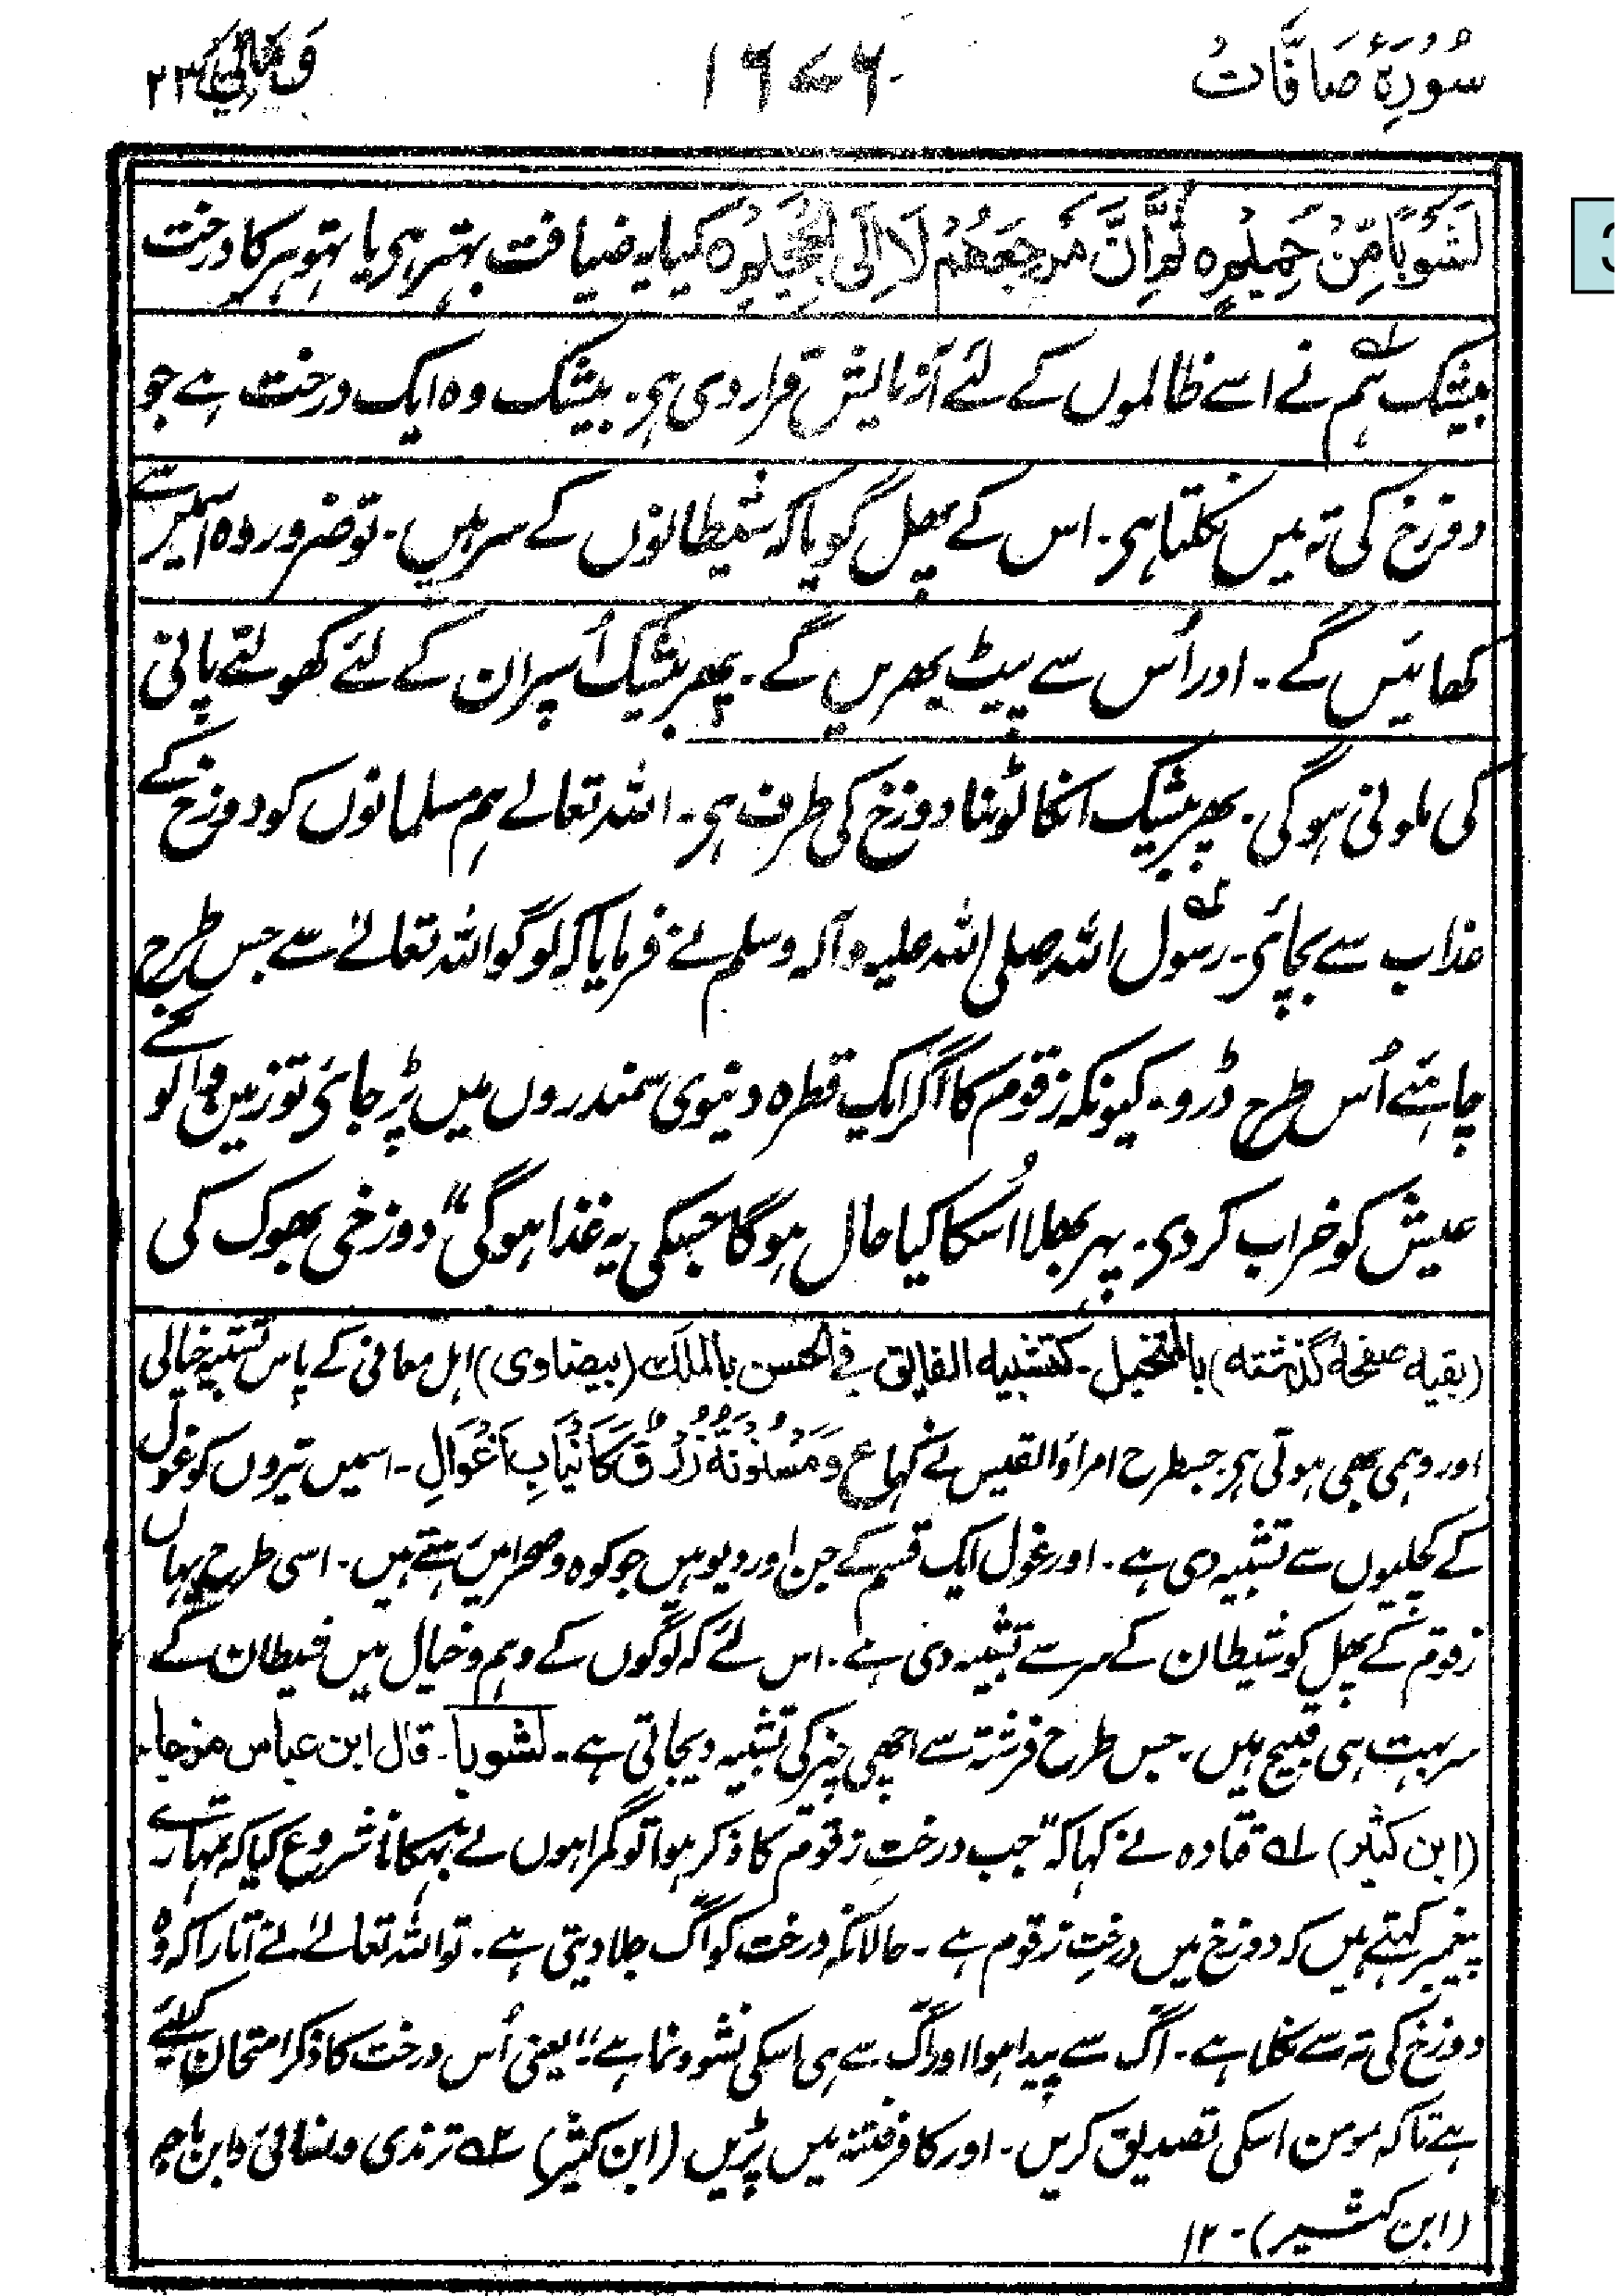 سُوْرَۂ صَافَّات ١٦٧٦ وَمَالِيَ ٢٣
لَشَوْبًا مِّنْ حَمِيْمٍ ٥ ثُمَّ اِنَّ مَرْجِعَهُمْ لَا اِلَى الْجَحِيْمِ ٥ کیا یہ ضیافت بہتر ہی یا تھوہر کا درخت
بیشک ہم نے اسے ظالموں کے لئے آزمایش قرار دی ہی۔ بیشک وہ ایک درخت ہے جو
دوزخ کی تہ میں نکلتا ہی۔ اس کے پھل گویا کہ شیطانوں کے سر ہیں۔ تو ضرور وہ اسمیں سے
کھائیں گے۔ اور اُس سے پیٹ بھریں گے۔ پھر بیشک اُسپر ان کے لئے کھولتے پانی
کی ملونی ہوگی۔ پھر بیشک انکا لوٹنا دوزخ کی طرف ہی۔ اللہ تعالے ہم مسلمانوں کو دوزخ کے
عذاب سے بچائی۔ رسول اللہ صلی اللہ علیہ وآلہ وسلم نے فرمایا کہ لوگو اللہ تعالےٰ سے جس طرح
چاہئے اُس طرح ڈرو۔ کیونکہ زقوم کا اگر ایک قطرہ دنیوی سمندروں میں پڑ جائی تو زمین والو نکے
عیش کو خراب کر دی۔ پہر بھلا اُسکا کیا حال ہوگا جسکی یہ غذا ہوگی“ دوزخی بھوک کی
(بقیہ صفحہ گذشتہ) بالتخیل۔ کتشبیہ الفایق فی الحسن بالملک (بیضاوی) اہل معانی کے پاس تشبیہ خیالی
اور وہمی بھی ہوتی ہی جسطرح امراؤالقیس نے کہا ع وَمَسْنُوْنَةٌ زُرْقٌ كَاَنْيَابِ اَغْوَالِ۔ اسمیں تیروں کو غول
کے کچلیوں سے تشبیہ دی ہے۔ اور غول ایک قسم کے جن اور دیو ہیں جو کوہ و صحرا میں رہتے ہیں۔ اسی طرح یہاں
زقوم کے پھل کو شیطان کے سر سے تشبیہ دی ہے۔ اس لئے کہ لوگوں کے وہم و خیال میں شیطان کے
سر بہت ہی قبیح ہیں۔ جس طرح فرشتہ سے اچھی چیز کی تشبیہ دیجاتی ہے۔ لشوبا۔ قال ابن عباس مزجا۔
(ابن کثیر) لہ قتادہ نے کہا کہ ”جب درخت زقوم کا ذکر ہوا تو گمراہوں نے بہکانا شروع کیا کہ تمہارے
پیغمبر کہتے ہیں کہ دوزخ میں درختِ زقوم ہے۔ حالانکہ درخت کو آگ جلا دیتی ہے۔ تو اللہ تعالےٰ نے اتارا کہ وہ
دوزخ کی تہ سے نکلا ہے۔ آگ سے پیدا ہوا اور آگ سے ہی اسکی نشو و نما ہے۔“ یعنی اُس درخت کا ذکر امتحان کیلئے
ہے تاکہ مومن اسکی تصدیق کریں۔ اور کافر فتنہ میں پڑیں (ابن کثیر) ٢ہ ترمذی و نسائی و ابن ماجہ
(ابن کثیر)۔ ١٢